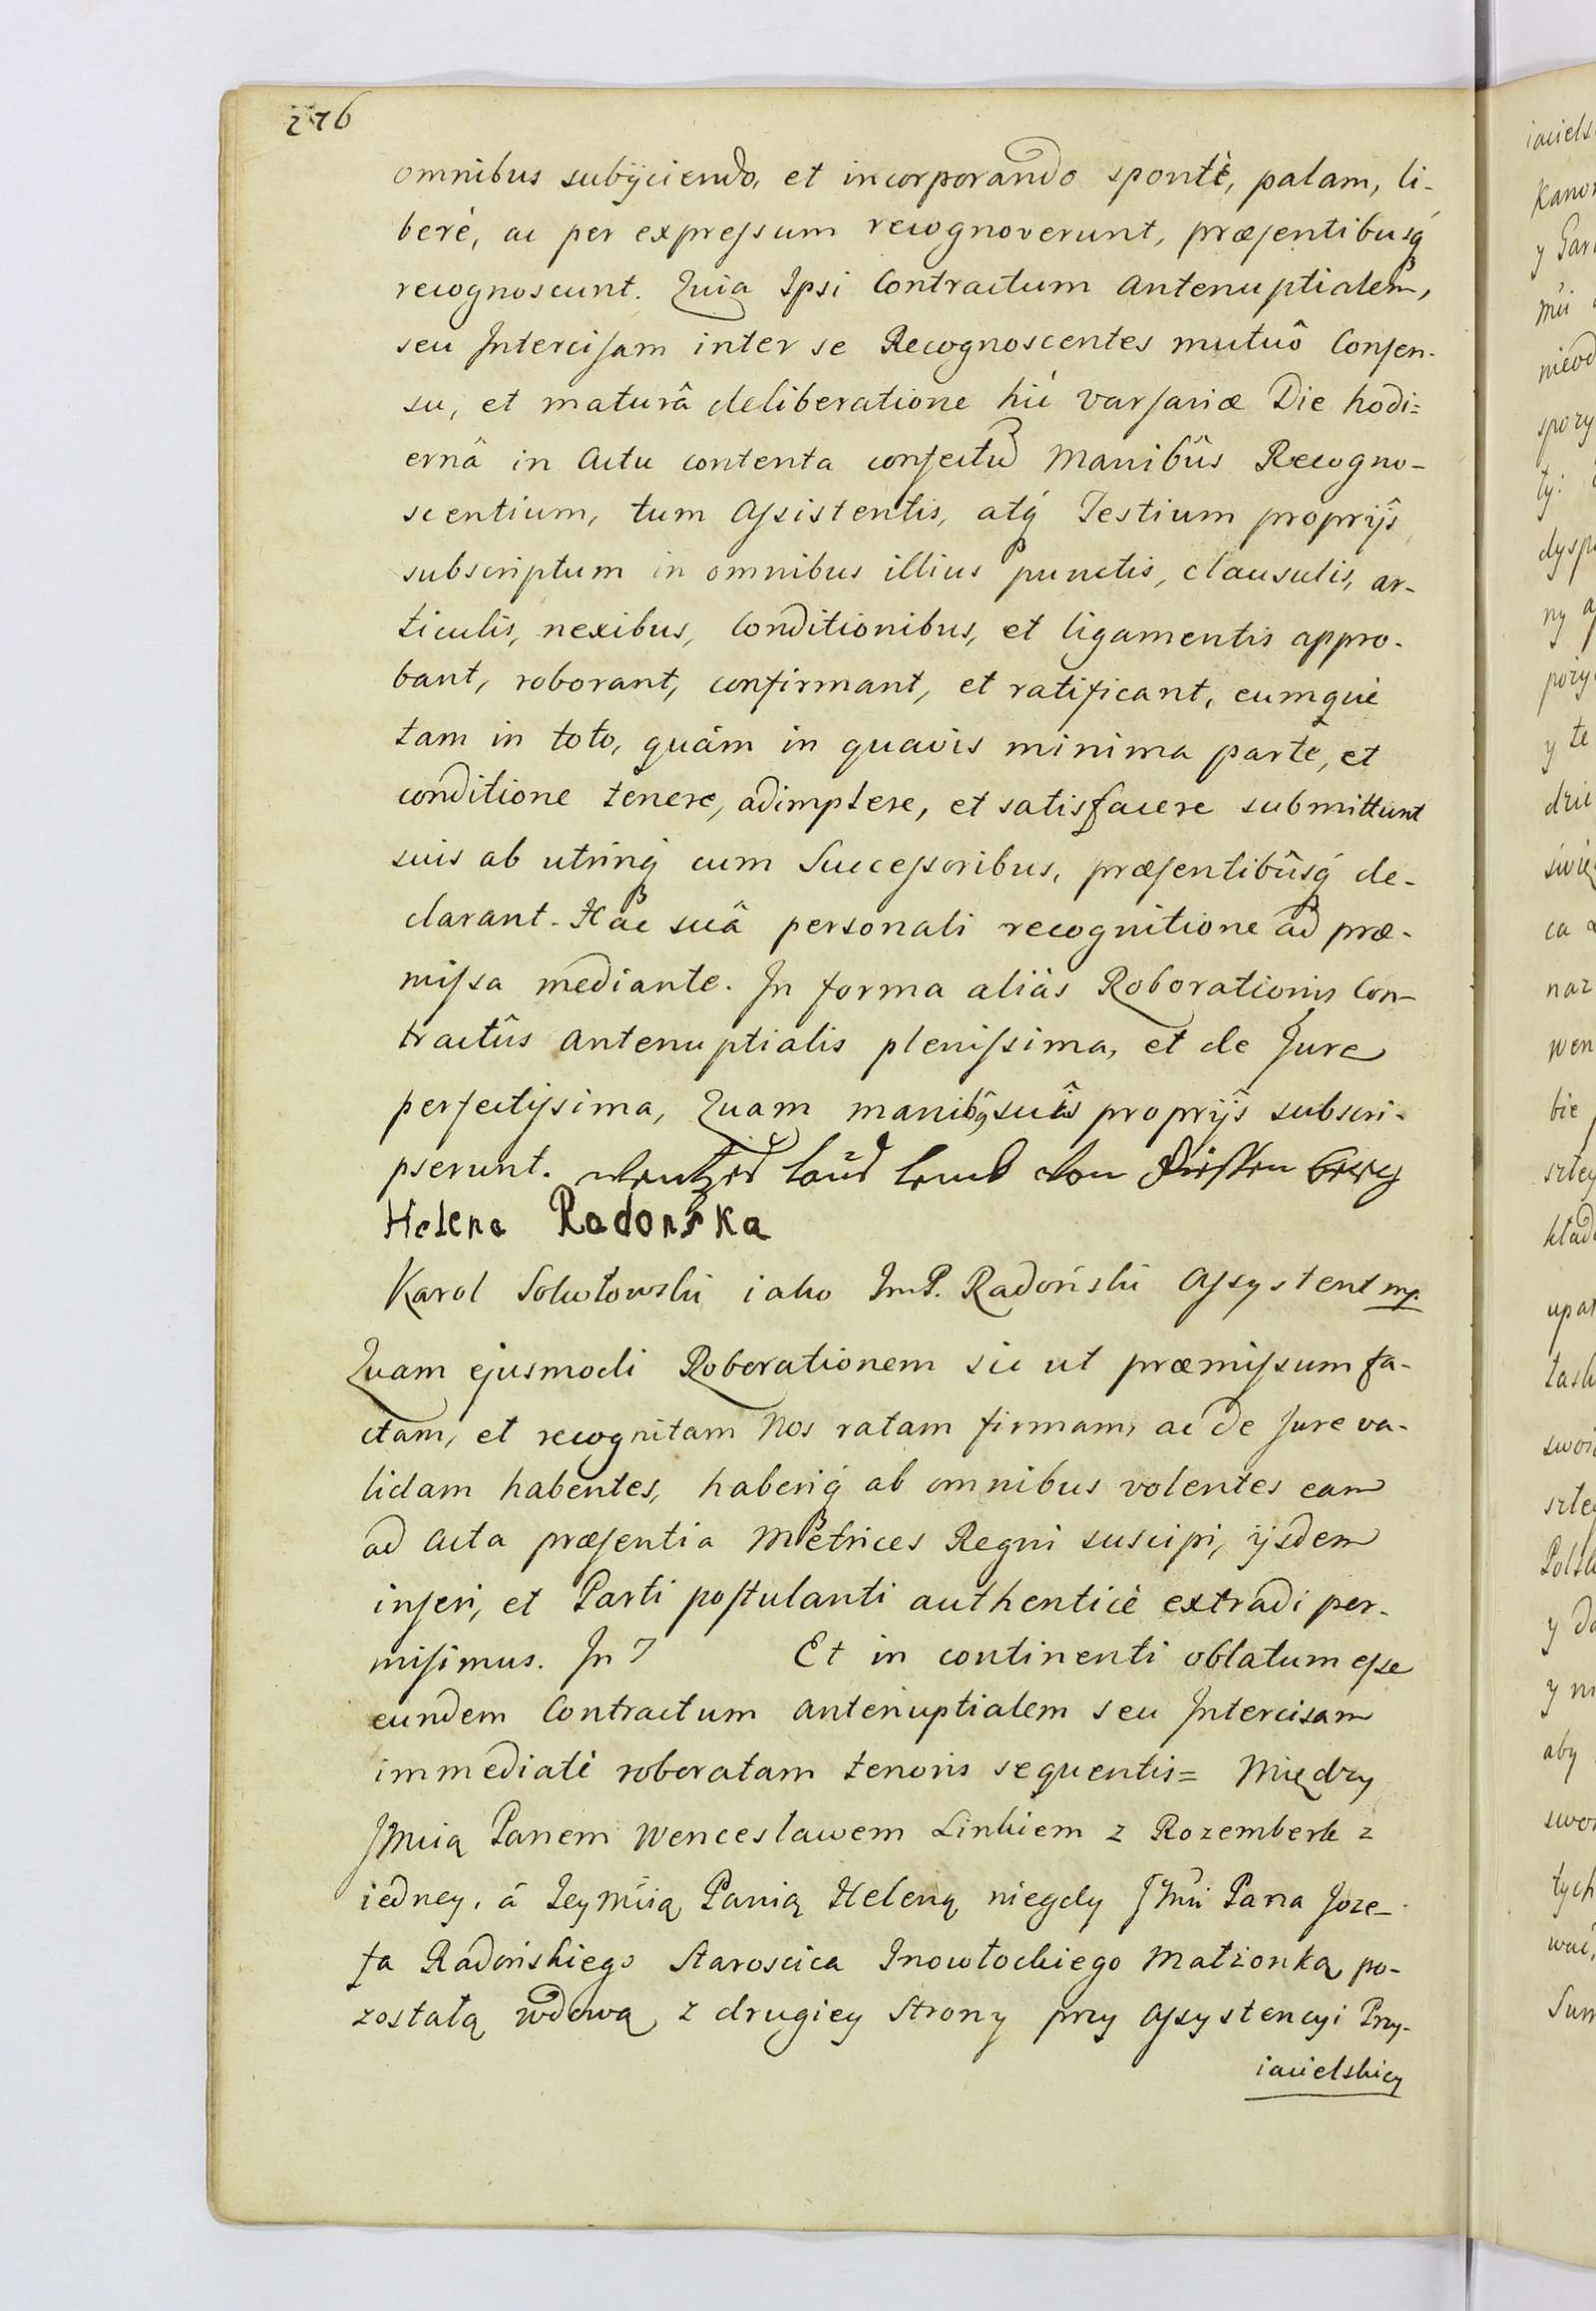 276
omnibus subijciendo, et incorporando spontè, palam, li-
berè, ac per expressum recognoverunt, præsentibusq́
recognoscunt. Quia Ipsi Contractum Antenuptialem,
seu Intercisam inter se Recognoscentes mutuô Consen-
su, et maturâ deliberatione hìc Varsaviæ Die hodi=
ernâ in Actu contenta confectũ Manibûs Recogno-
scentium, tum Assistentis, atq́ Testium proprijs
subscriptum in omnibus illius punctis, clausulis, ar-
ticulis, nexibus, Conditionibus, et ligamentis appro-
bant, roborant, confirmant, et ratificant, eumquè
tam in toto, quám in quavis minima parte, et
conditione tenere, adimplere, et satisfacere submittunt
suis ab utrinq́ cum Successoribus, præsentibûsq́ de-
clarant. Hac suâ personali recognitione ad præ-
missa mediante. In forma aliàs Roborationis Con-
tractûs Antenuptialis plenissima, et de Jure
perfectissima, Quam manibq suîs proprijs subscri-
pserunt.
Helena Radonska
Karol Sokołowski iako ImP. Radoński Assystent mp.
Quam ejusmodi Roborationem sic ut præmissum fa-
ctam, et recognitam Nos ratam firmam, ac de Jure va-
lidam habentes, haberiq́ ab omnibus volentes eam
ad Acta præsentia Metrices Regni suscipi, ijsdem
inseri, et Parti postulanti authenticè extradi per-
misimus. In 7 Et in continenti oblatum esse
eundem Contractum Antenuptialem seu Intercisam
immediatè roboratam tenoris sequentis= Między
JMcią Panem Wencesławem Linkiem z Rozemberk z
iedney, á Jeymcią Panią Heleną niegdy JMci Pana Joze-
fa Radońskiego Staroscica Inowłockiego Małżonką po-
zostałą wdową z drugiey Strony przy Assystencyi Przy-
iacielskiey